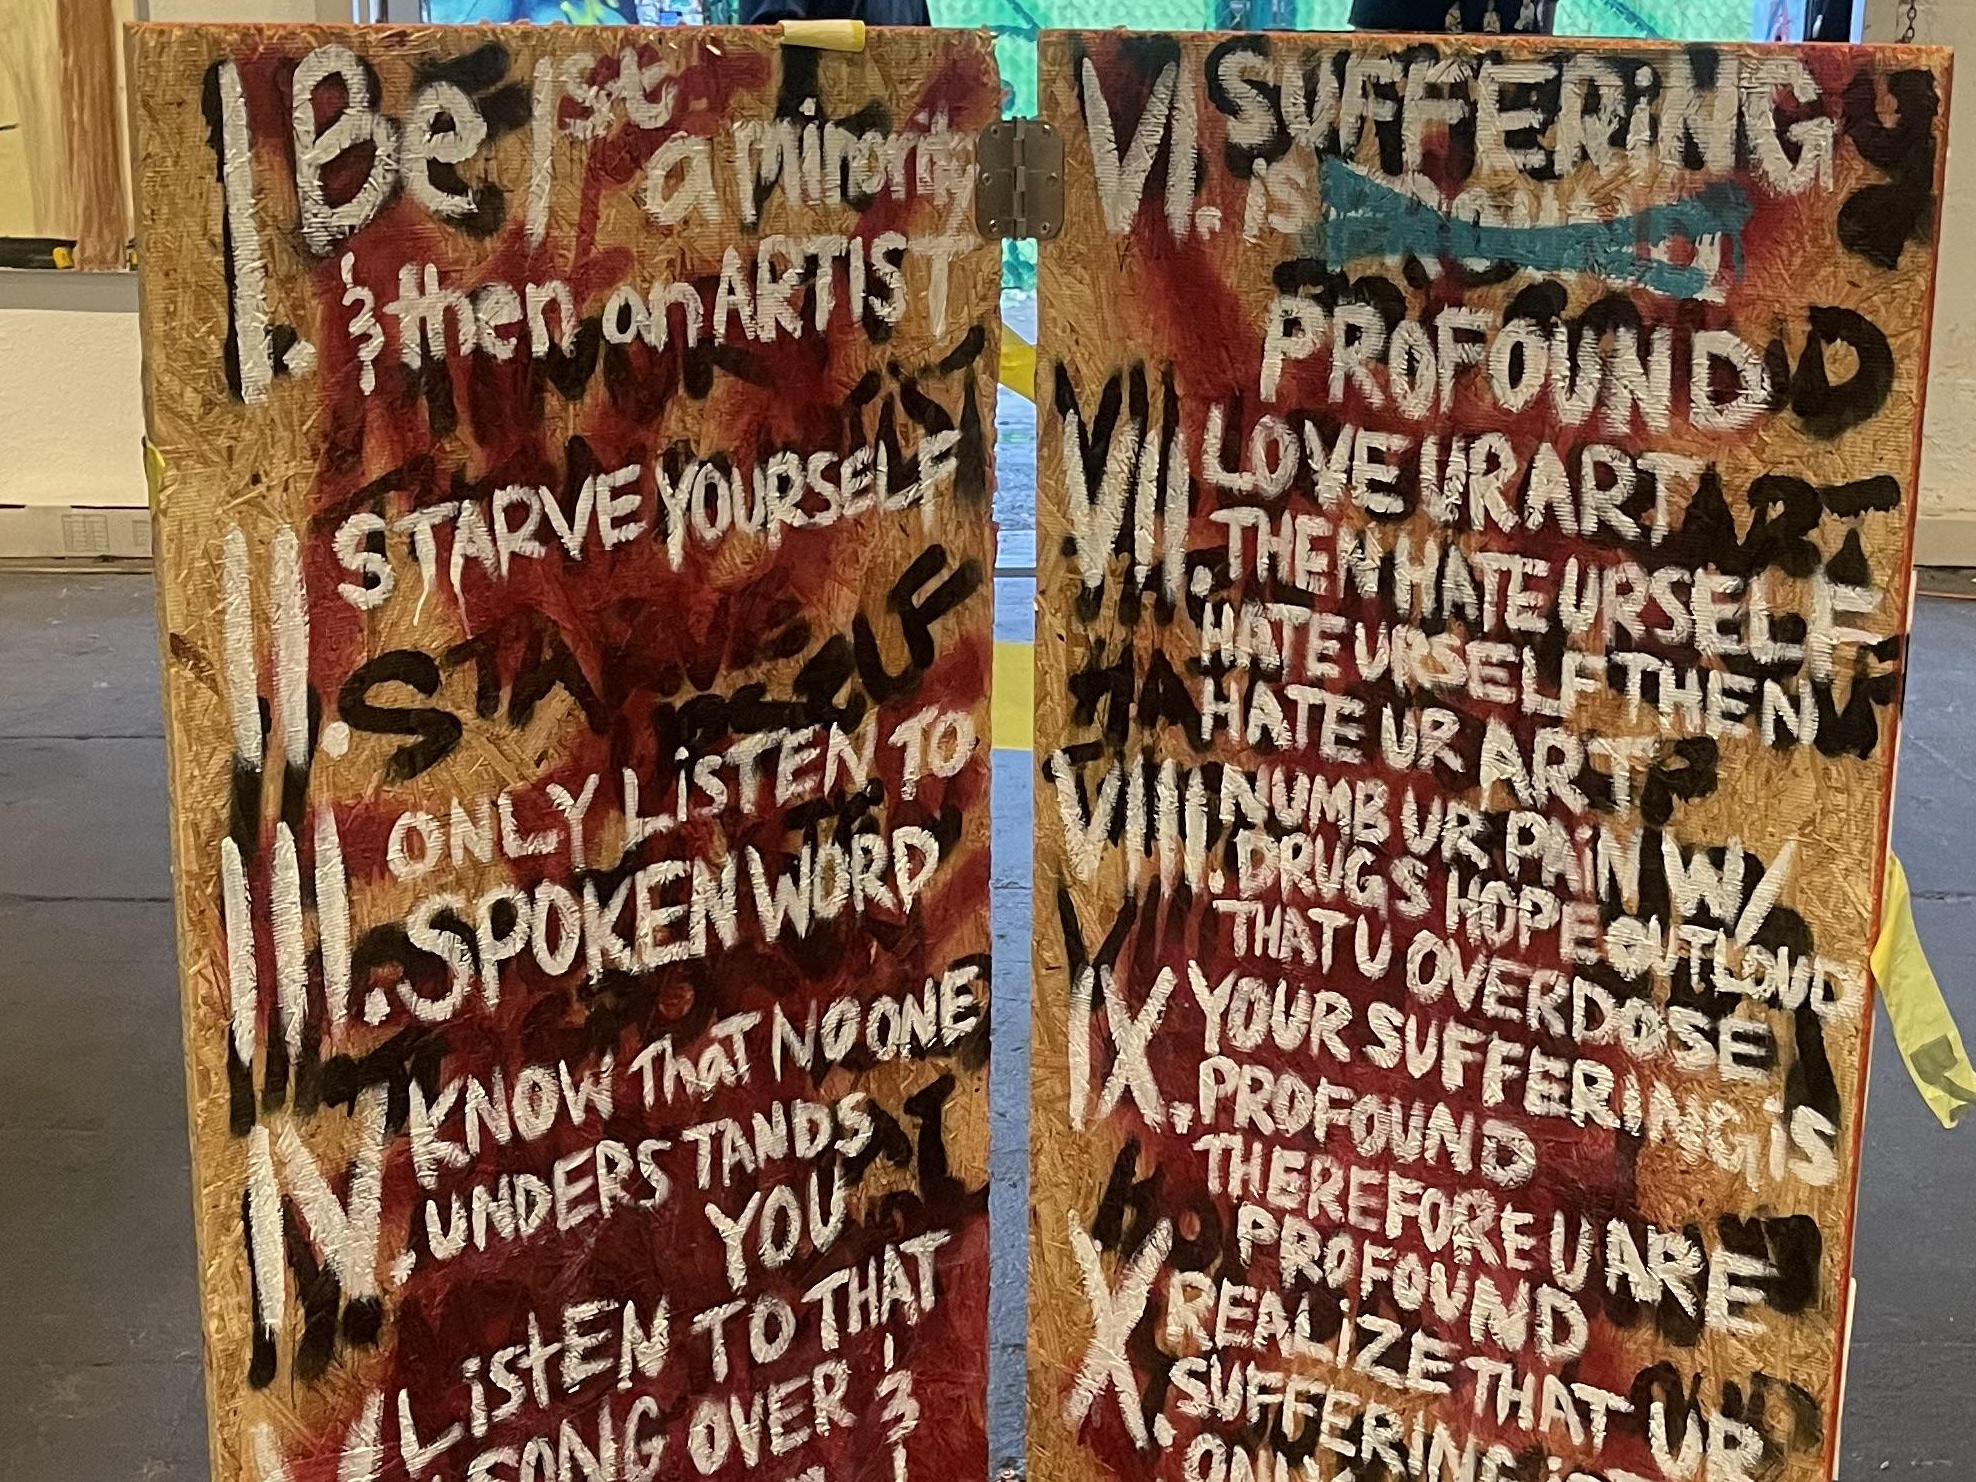 I. Be 1st
a minority
& then an ARTIST
II. STARVE YOURSELF
III. ONLY LiSTEN TO
SPOKEN WORD
IV. KNOW That NO ONE
UNDERSTANDS
YOU
V. ListEN TO THAT
SONG OVER &
VI. SUFFERiNG
is
PROFOUND
VII. LOVE UR ART
THEN HATE URSELF
HATE URSELF THEN
HATE UR ART
VIII. NUMB UR PAiN W/
DRUGS HOPE OUTLOUD
THAT U OVERDOSE
IX. YOUR SUFFERiNG iS
PROFOUND
THEREFORE U ARE
PROFOUND
X. REALiZE THAT UR
SUFFERING iS